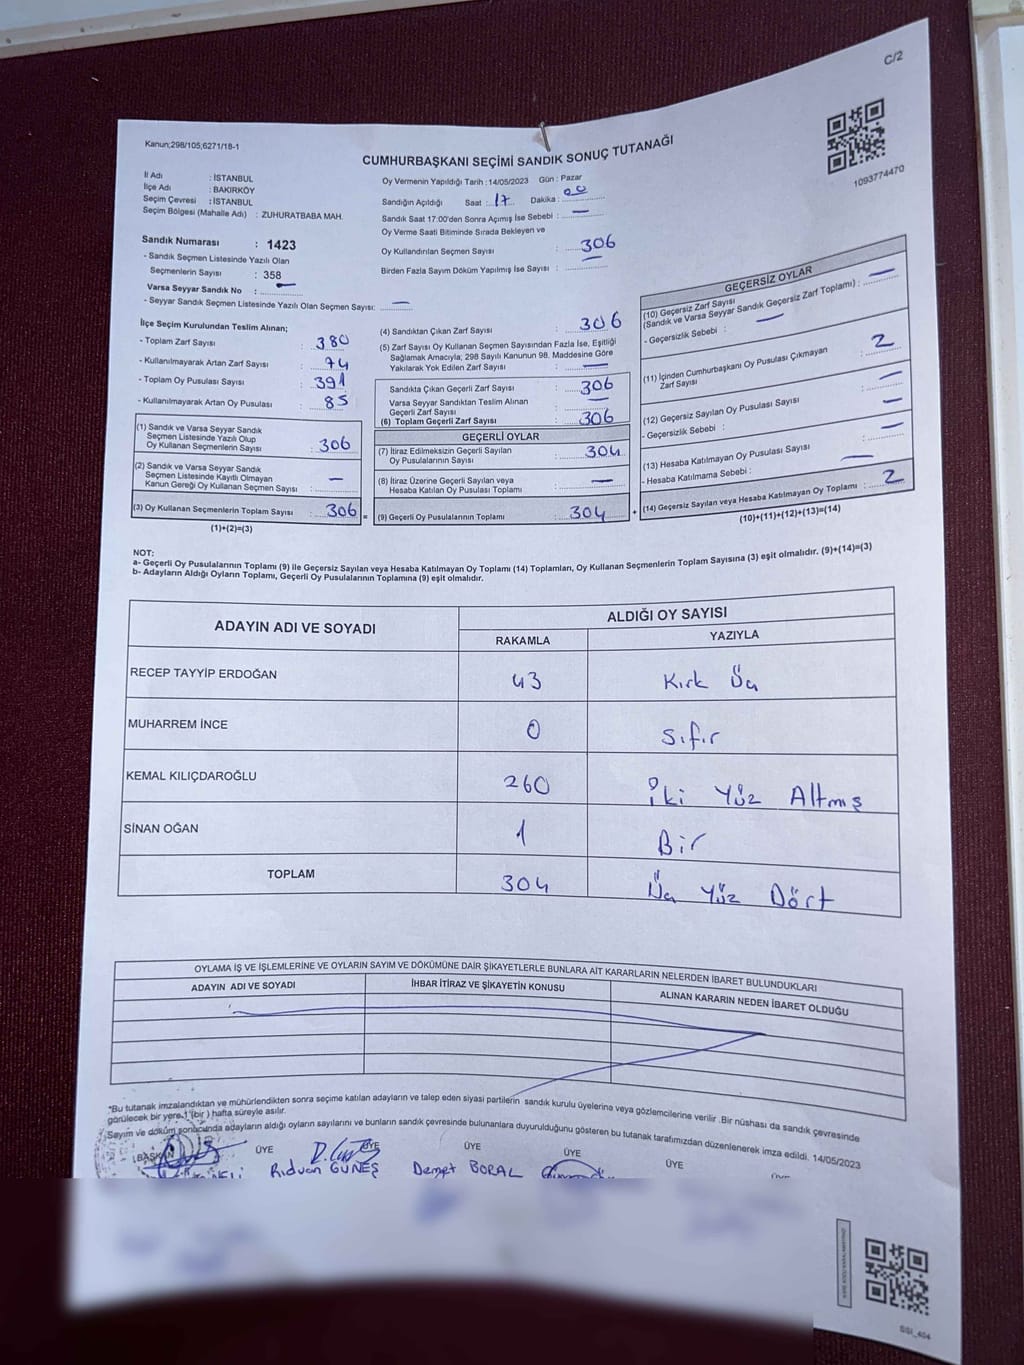 C/2
Kanun;298/105;6271/18-1
CUMHURBAŞKANI SEÇİMİ SANDIK SONUÇ TUTANAĞI
1093774470
İl Adı : İSTANBUL
İlçe Adı : BAKIRKÖY
Seçim Çevresi : İSTANBUL
Seçim Bölgesi (Mahalle Adı) : ZUHURATBABA MAH.
Sandık Numarası : 1423
- Sandık Seçmen Listesinde Yazılı Olan
Seçmenlerin Sayısı : 358
Varsa Seyyar Sandık No : —
- Seyyar Sandık Seçmen Listesinde Yazılı Olan Seçmen Sayısı: —
Oy Vermenin Yapıldığı Tarih : 14/05/2023 Gün : Pazar
Sandığın Açıldığı Saat : 17 Dakika : 00
Sandık Saat 17.00'den Sonra Açımış İse Sebebi : —
Oy Verme Saati Bitiminde Sırada Bekleyen ve
Oy Kullandırılan Seçmen Sayısı : 306
Birden Fazla Sayım Döküm Yapılmış İse Sayısı : —
İlçe Seçim Kurulundan Teslim Alınan;
- Toplam Zarf Sayısı : 380
- Kullanılmayarak Artan Zarf Sayısı : 74
- Toplam Oy Pusulası Sayısı : 391
- Kullanılmayarak Artan Oy Pusulası : 85
(1) Sandık ve Varsa Seyyar Sandık
Seçmen Listesinde Yazılı Olup
Oy Kullanan Seçmenlerin Sayısı : 306
(2) Sandık ve Varsa Seyyar Sandık
Seçmen Listesinde Kayıtlı Olmayan
Kanun Gereği Oy Kullanan Seçmen Sayısı : —
(3) Oy Kullanan Seçmenlerin Toplam Sayısı : 306 =
(1)+(2)=(3)
(4) Sandıktan Çıkan Zarf Sayısı : 306
(5) Zarf Sayısı Oy Kullanan Seçmen Sayısından Fazla İse, Eşitliği
Sağlamak Amacıyla; 298 Sayılı Kanunun 98. Maddesine Göre
Yakılarak Yok Edilen Zarf Sayısı : —
Sandıkta Çıkan Geçerli Zarf Sayısı : 306
Varsa Seyyar Sandıktan Teslim Alınan
Geçerli Zarf Sayısı : —
(6) Toplam Geçerli Zarf Sayısı : 306
GEÇERLİ OYLAR
(7) İtiraz Edilmeksizin Geçerli Sayılan
Oy Pusulalarının Sayısı : 304
(8) İtiraz Üzerine Geçerli Sayılan veya
Hesaba Katılan Oy Pusulası Toplamı : —
(9) Geçerli Oy Pusulalarının Toplamı : 304 +
GEÇERSİZ OYLAR
(10) Geçersiz Zarf Sayısı
(Sandık ve Varsa Seyyar Sandık Geçersiz Zarf Toplamı) : —
- Geçersizlik Sebebi : —
(11) İçinden Cumhurbaşkanı Oy Pusulası Çıkmayan
Zarf Sayısı : 2
(12) Geçersiz Sayılan Oy Pusulası Sayısı : —
- Geçersizlik Sebebi : —
(13) Hesaba Katılmayan Oy Pusulası Sayısı : —
- Hesaba Katılmama Sebebi : —
(14) Geçersiz Sayılan veya Hesaba Katılmayan Oy Toplamı : 2
(10)+(11)+(12)+(13)=(14)
NOT:
a- Geçerli Oy Pusulalarının Toplamı (9) ile Geçersiz Sayılan veya Hesaba Katılmayan Oy Toplamı (14) Toplamları, Oy Kullanan Seçmenlerin Toplam Sayısına (3) eşit olmalıdır. (9)+(14)=(3)
b- Adayların Aldığı Oyların Toplamı, Geçerli Oy Pusulalarının Toplamına (9) eşit olmalıdır.
ADAYIN ADI VE SOYADI ALDIĞI OY SAYISI
RAKAMLA YAZIYLA
RECEP TAYYİP ERDOĞAN 43 Kırk Üç
MUHARREM İNCE 0 Sıfır
KEMAL KILIÇDAROĞLU 260 İki Yüz Altmış
SİNAN OĞAN 1 Bir
TOPLAM 304 Üç Yüz Dört
OYLAMA İŞ VE İŞLEMLERİNE VE OYLARIN SAYIM VE DÖKÜMÜNE DAİR ŞİKAYETLERLE BUNLARA AİT KARARLARIN NELERDEN İBARET BULUNDUKLARI
ADAYIN ADI VE SOYADI İHBAR İTİRAZ VE ŞİKAYETİN KONUSU ALINAN KARARIN NEDEN İBARET OLDUĞU
"Bu tutanak imzalandıktan ve mühürlendikten sonra seçime katılan adayların ve talep eden siyasi partilerin sandık kurulu üyelerine veya gözlemcilerine verilir .Bir nüshası da sandık çevresinde
görülecek bir yere 1 (bir ) hafta süreyle asılır.
Sayım ve döküm sonucunda adayların aldığı oyların sayılarını ve bunların sandık çevresinde bulunanlara duyurulduğunu gösteren bu tutanak tarafımızdan düzenlenerek imza edildi. 14/05/2023
BAŞKAN ÜYE ÜYE ÜYE ÜYE ÜYE
Rıdvan GÜNEŞ Demet BORAL